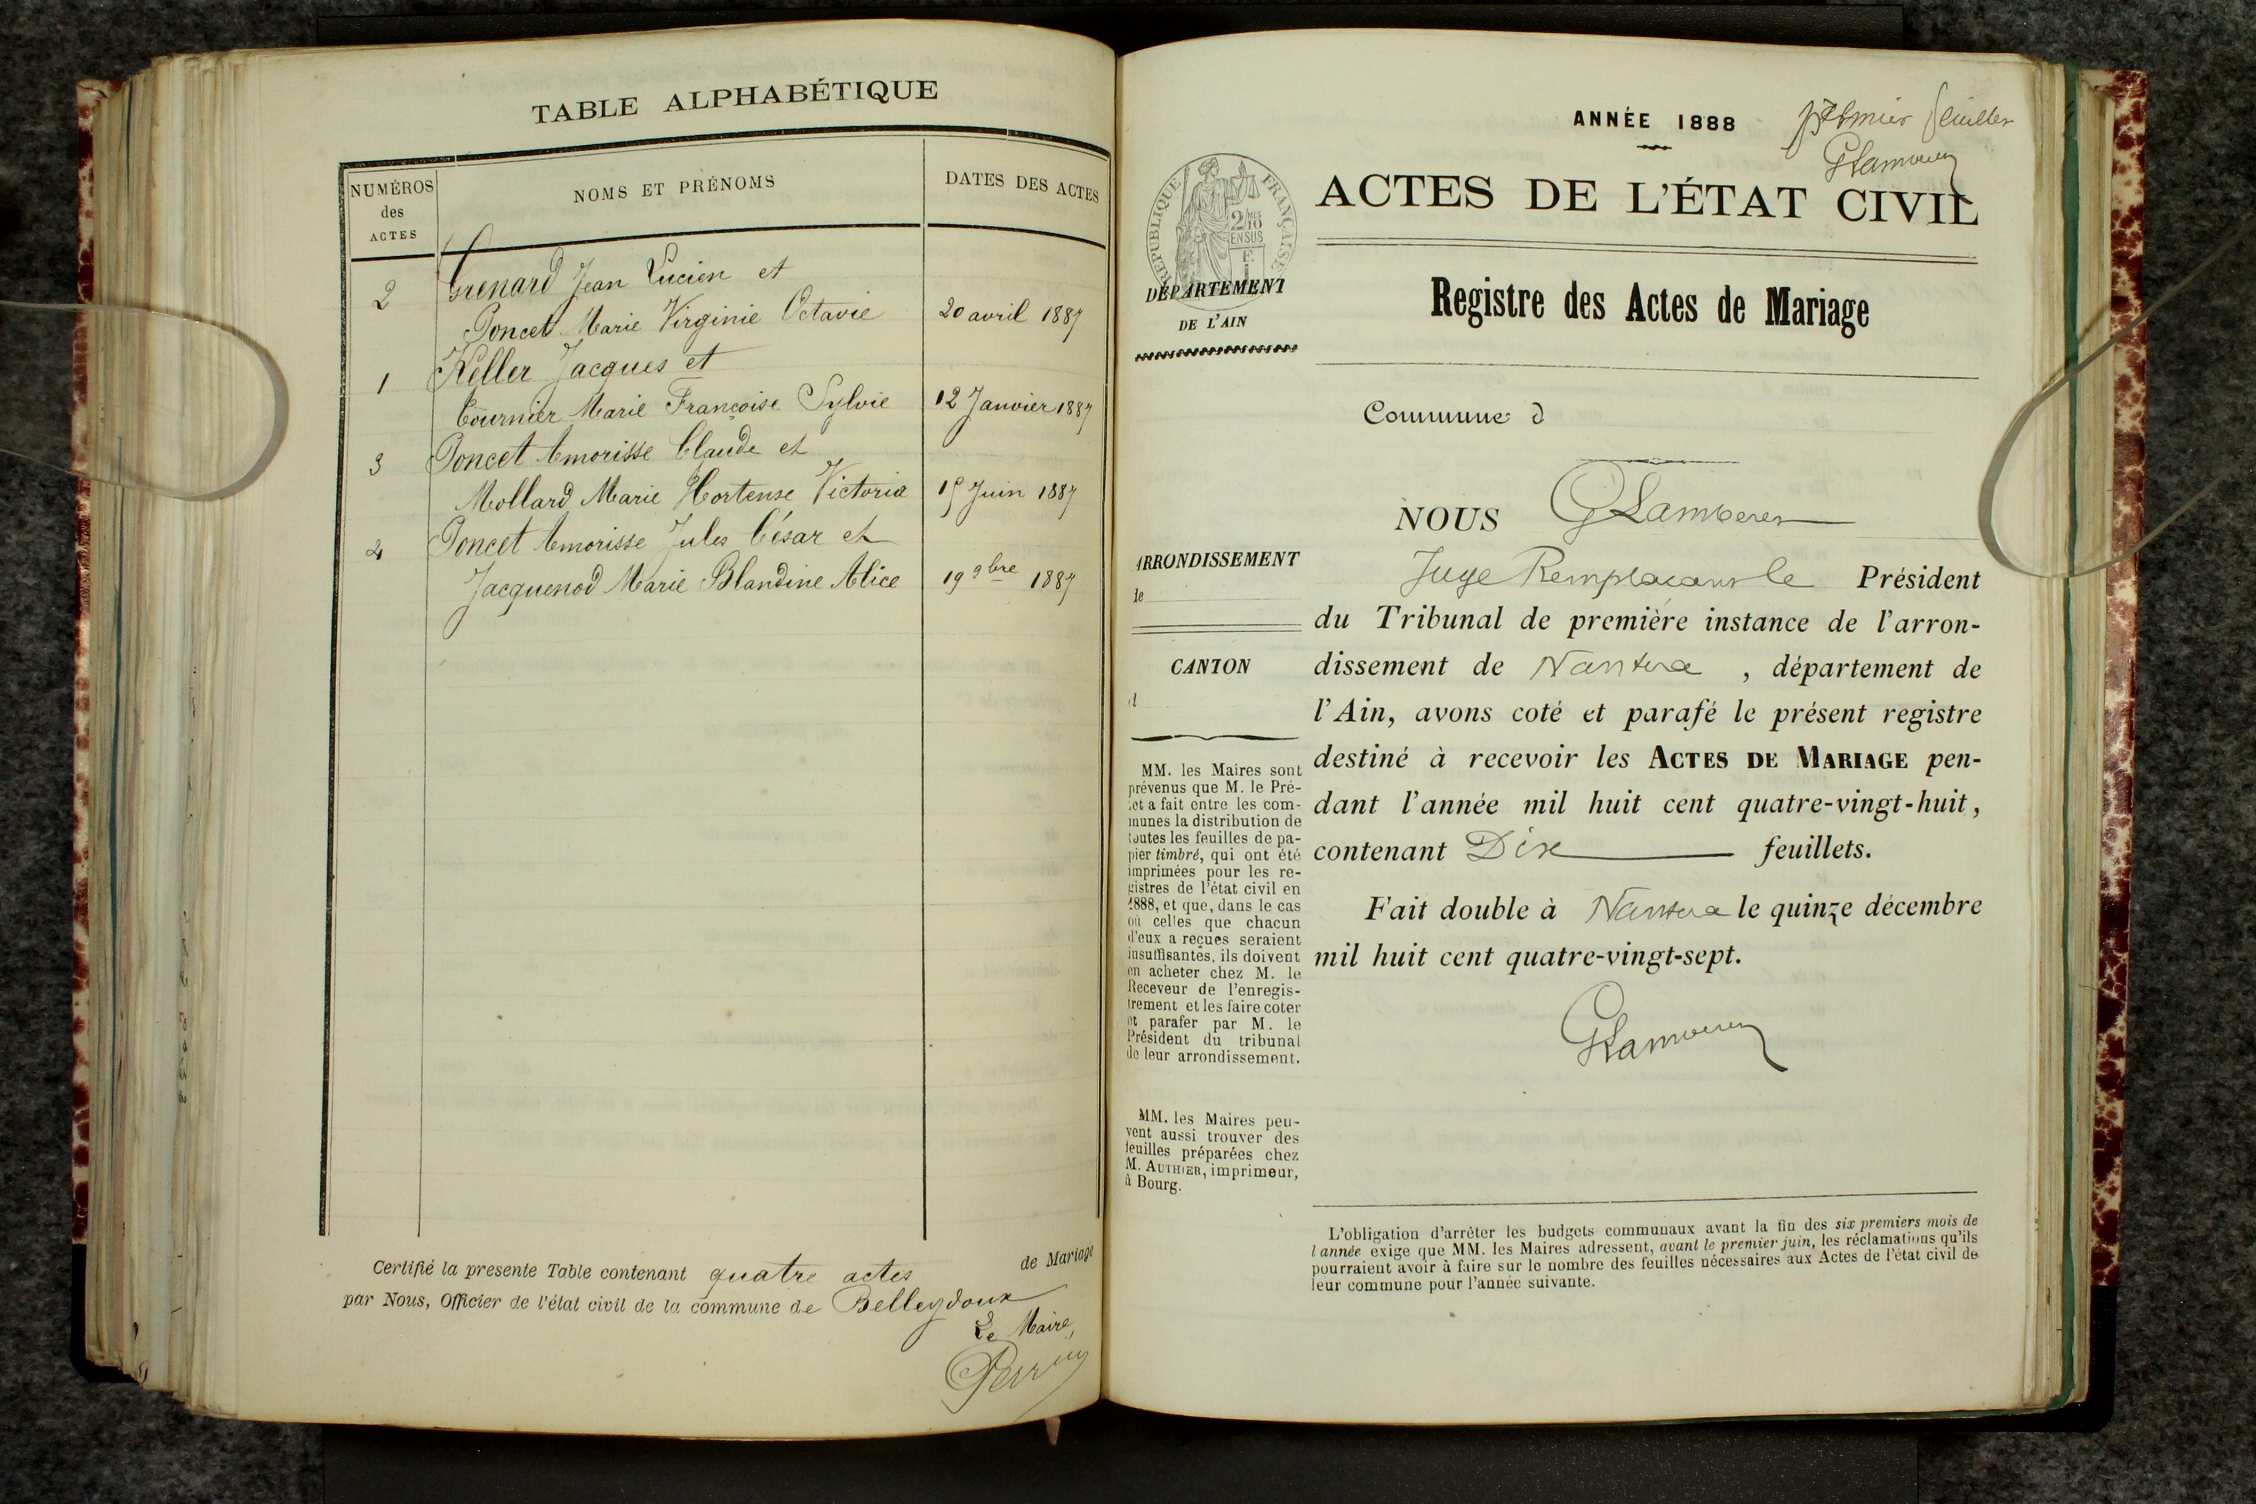 TABLE ALPHABÉTIQUE
NUMÉROS
des
ACTES
NOMS ET PRÉNOMS
DATES DES ACTES
2
Grenard Jean Lucien et
Poncet Marie Virginie Octavie
20 avril 1887
1
Keller Jacques et
Tournier Marie Françoise Sylvie
12 Janvier 1887
3
Poncet Amorisse Claude et
Mollard Marie Hortense Victoria
15 Juin 1887
4
Poncet Amorisse Jules César et
Jacquenod Marie Blandine Alice
19 9bre 1887
Certifié la presente Table contenant quatre actes de Mariage
par Nous, Officier de l'état civil de la commune de Belleydoux
Le Maire,
ANNÉE 1888
premier feuillet
RÉPUBLIQUE FRANÇAISE
ACTES DE L'ÉTAT CIVIL
DÉPARTEMENT
DE L'AIN
Registre des Actes de Mariage
Commune d
NOUS
ARRONDISSEMENT
de
CANTON
d
Juge Remplaçant le Président
du Tribunal de première instance de l'arron-
dissement de Nantua, département de
l'Ain, avons coté et parafé le présent registre
destiné à recevoir les ACTES DE MARIAGE pen-
dant l'année mil huit cent quatre-vingt-huit,
contenant Dix feuillets.
Fait double à Nantua le quinze décembre
mil huit cent quatre-vingt-sept.
MM. les Maires sont
prévenus que M. le Pré-
fet a fait entre les com-
munes la distribution de
toutes les feuilles de pa-
pier timbré, qui ont été
imprimées pour les re-
gistres de l'état civil en
1888, et que, dans le cas
où celles que chacun
d'eux a reçues seraient
insuffisantes, ils doivent
en acheter chez M. le
Receveur de l'enregis-
trement et les faire coter
et parafer par M. le
Président du tribunal
de leur arrondissement.
MM. les Maires peu-
vent aussi trouver des
feuilles préparées chez
M. AUTHIER, imprimeur,
à Bourg.
L'obligation d'arrêter les budgets communaux avant la fin des six premiers mois de
l'année exige que MM. les Maires adressent, avant le premier juin, les réclamations qu'ils
pourraient avoir à faire sur le nombre des feuilles nécessaires aux Actes de l'état civil de
leur commune pour l'année suivante.